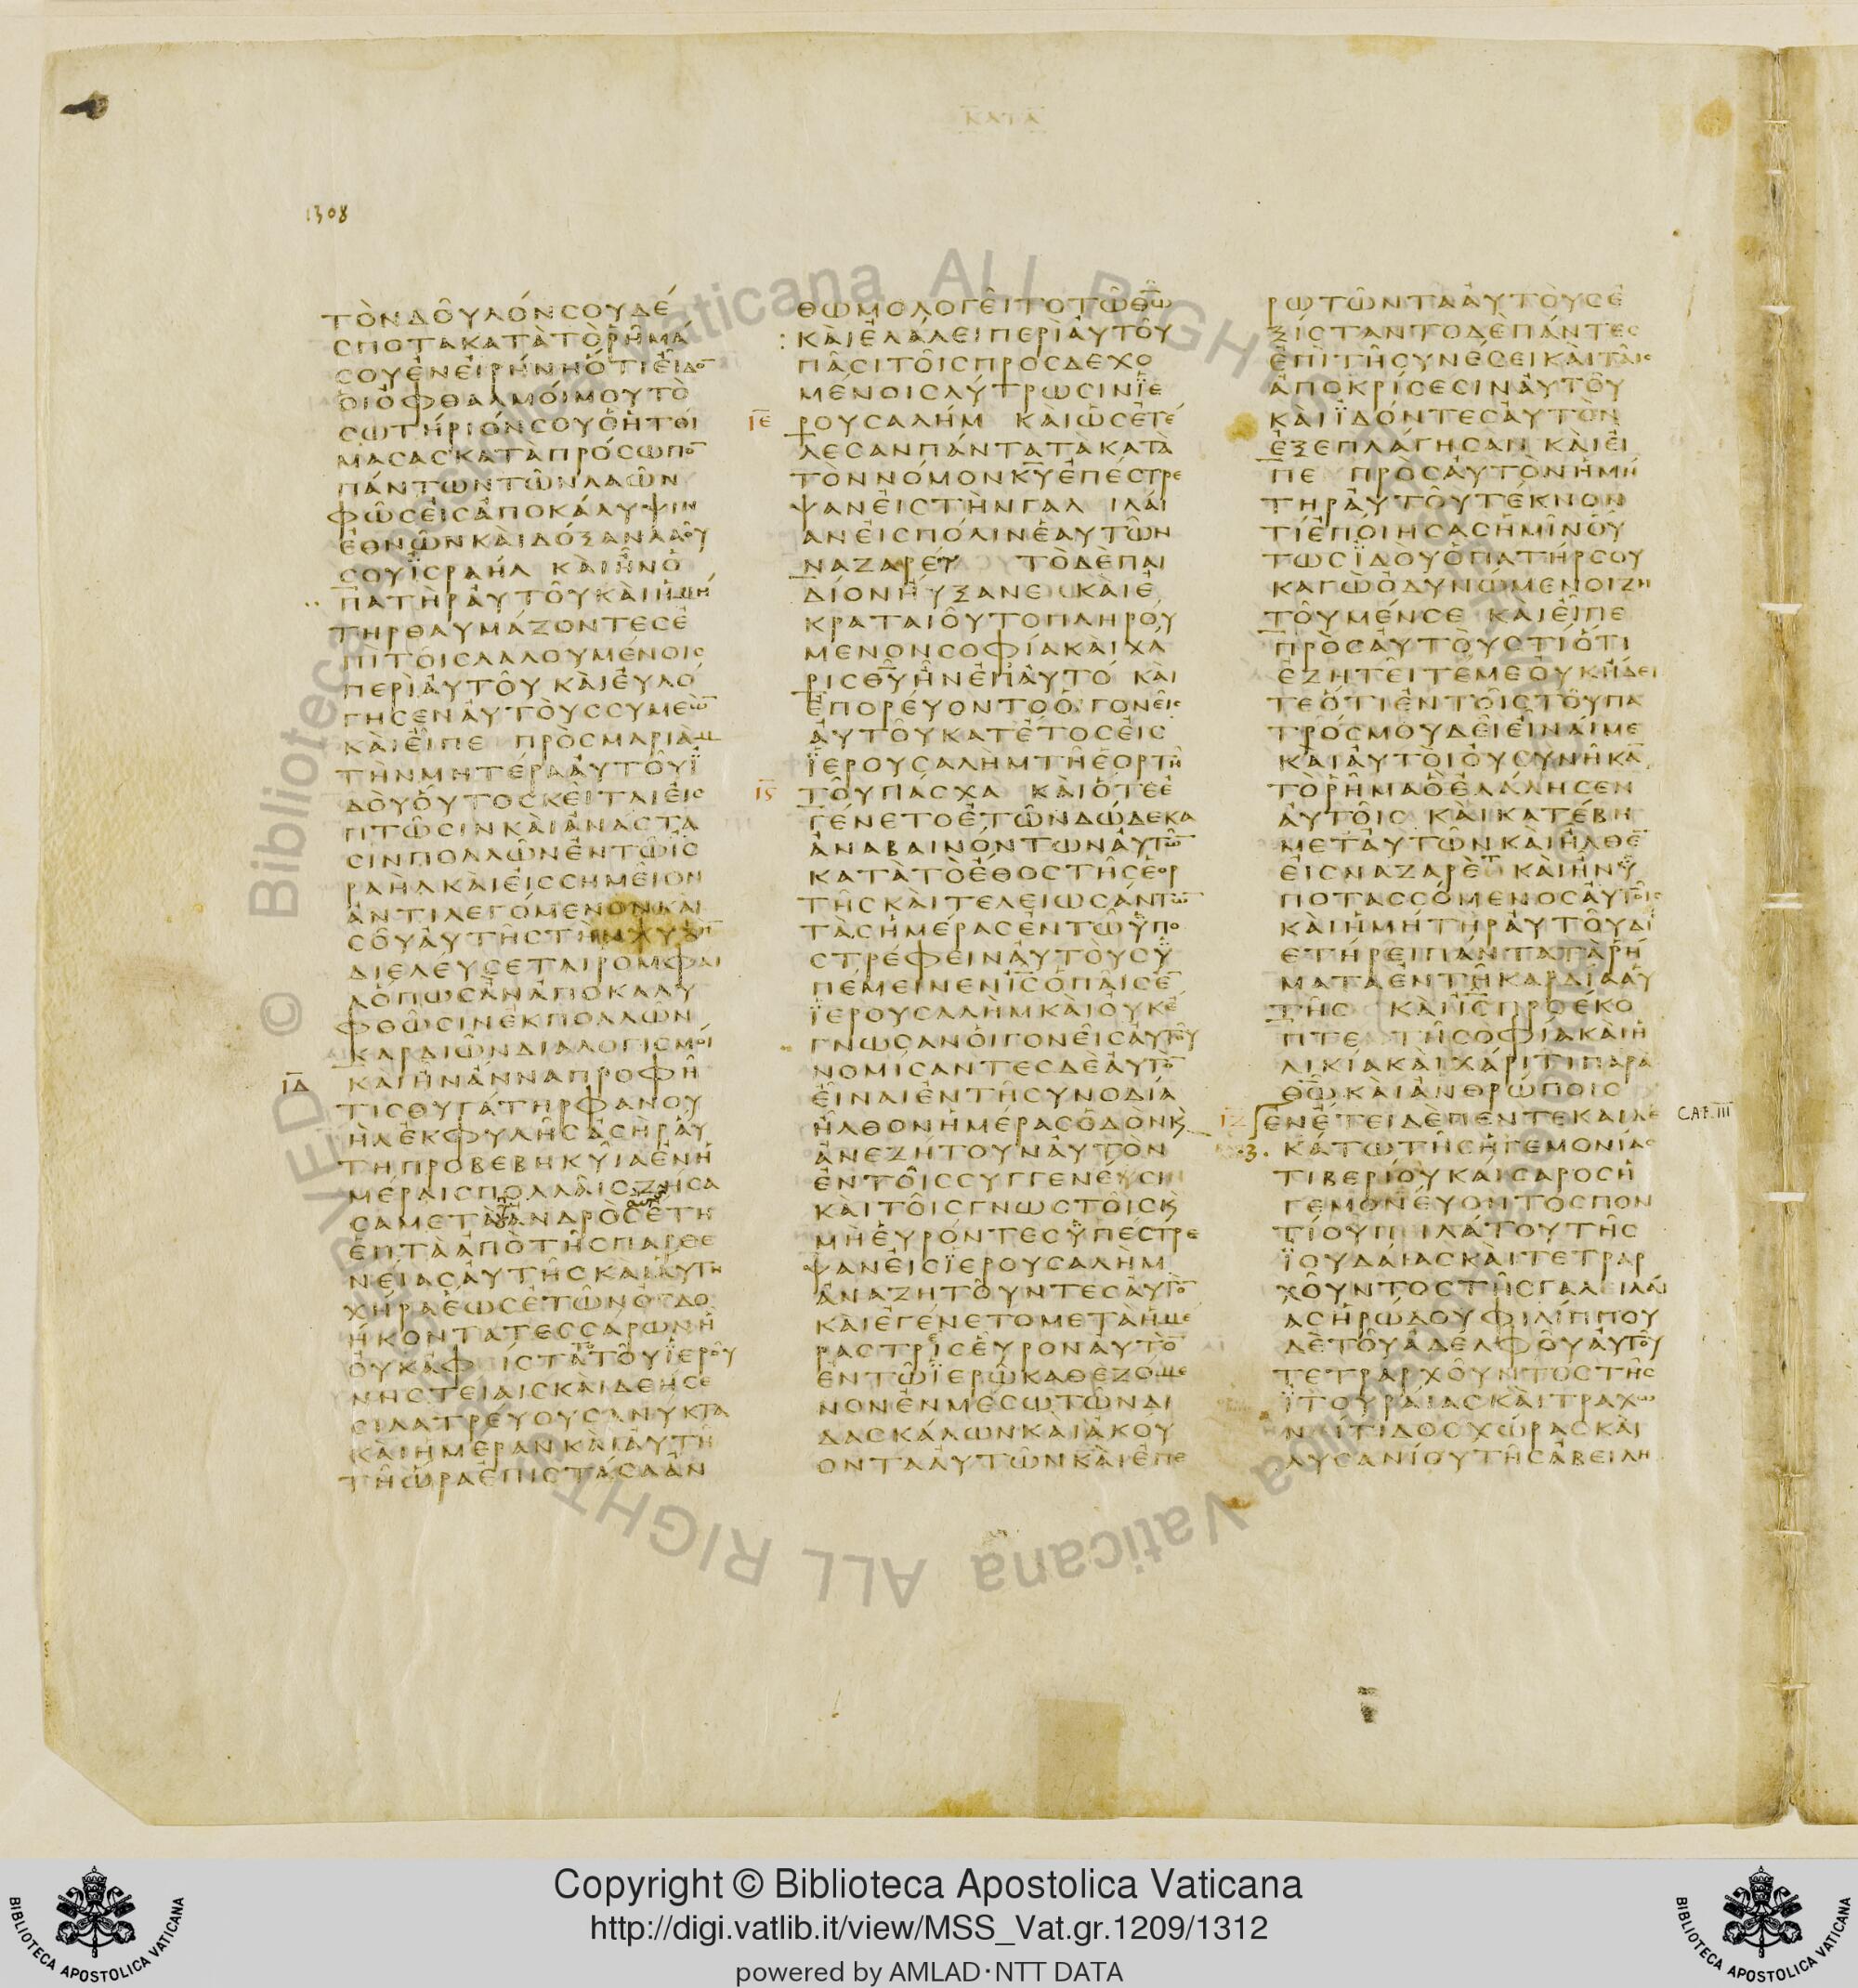 ΚΑΤΑ
1308
ΤΟΝΔΟΥΛΟΝΣΟΥΔΕ
ΣΠΟΤΑΚΑΤΑΤΟΡΗΜΑ
ΣΟΥΕΝΕΙΡΗΝΗΟΤΙΕΙΔΟ̅
ΟΙΟΦΘΑΛΜΟΙΜΟΥΤΟ
ΣΩΤΗΡΙΟΝΣΟΥΟΗΤΟΙ
ΜΑΣΑΣΚΑΤΑΠΡΟΣΩΠΟ̅
ΠΑΝΤΩΝΤΩΝΛΑΩΝ
ΦΩΣΕΙΣΑΠΟΚΑΛΥΨΙΝ
ΕΘΝΩΝΚΑΙΔΟΞΑΝΛΑΟΥ
ΣΟΥΙΣΡΑΗΛ ΚΑΙΗΝΟ
ΠΑΤΗΡΑΥΤΟΥΚΑΙΗΜΗ
ΤΗΡΘΑΥΜΑΖΟΝΤΕΣΕ
ΠΙΤΟΙΣΛΑΛΟΥΜΕΝΟΙΣ
ΠΕΡΙΑΥΤΟΥ ΚΑΙΕΥΛΟ
ΓΗΣΕΝΑΥΤΟΥΣΣΥΜΕΩ̅
ΚΑΙΕΙΠΕ ΠΡΟΣΜΑΡΙΑΜ
ΤΗΝΜΗΤΕΡΑΑΥΤΟΥΙ
ΔΟΥΟΥΤΟΣΚΕΙΤΑΙΕΙΣ
ΠΤΩΣΙΝΚΑΙΑΝΑΣΤΑ
ΣΙΝΠΟΛΛΩΝΕΝΤΩΙΣ
ΡΑΗΛΚΑΙΕΙΣΣΗΜΕΙΟΝ
ΑΝΤΙΛΕΓΟΜΕΝΟΝΚΑΙ
ΣΟΥΑΥΤΗΣΤΗΝΨΥΧΗ̅
ΔΙΕΛΕΥΣΕΤΑΙΡΟΜΦΑΙ
ΑΟΠΩΣΑΝΑΠΟΚΑΛΥ
ΦΘΩΣΙΝΕΚΠΟΛΛΩΝ
ΚΑΡΔΙΩΝΔΙΑΛΟΓΙΣΜΟΙ
ΙΔ ΚΑΙΗΝΑΝΝΑΠΡΟΦΗ
ΤΙΣΘΥΓΑΤΗΡΦΑΝΟΥ
ΗΛΕΚΦΥΛΗΣΑΣΗΡΑΥ
ΤΗΠΡΟΒΕΒΗΚΥΙΑΕΝΗ
ΜΕΡΑΙΣΠΟΛΛΑΙΣΖΗΣΑ
ΣΑΜΕΤΑΑΝΔΡΟΣΕΤΗ
ΕΠΤΑΑΠΟΤΗΣΠΑΡΘΕ
ΝΕΙΑΣΑΥΤΗΣΚΑΙΑΥΤΗ
ΧΗΡΑΕΩΣΕΤΩΝΟΓΔΟ
ΗΚΟΝΤΑΤΕΣΣΑΡΩΝΗ
ΟΥΚΑΦ ΙΣΤΑΤΟΤΟΥΙΕΡΟΥ
ΝΗΣΤΕΙΑΙΣΚΑΙΔΕΗΣΕ
ΣΙΛΑΤΡΕΥΟΥΣΑΝΥΚΤΑ
ΚΑΙΗΜΕΡΑΝΚΑΙΑΥΤΗ
ΤΗΩΡΑΕΠΙΣΤΑΣΑΑΝ
ΘΩΜΟΛΟΓΕΙΤΟΤΩΘΩ̅
ΚΑΙΕΛΑΛΕΙΠΕΡΙΑΥΤΟΥ
ΠΑΣΙΤΟΙΣΠΡΟΣΔΕΧΟ
ΜΕΝΟΙΣΛΥΤΡΩΣΙΝΪΕ
ΙΕ ΡΟΥΣΑΛΗΜ ΚΑΙΩΣΕΤΕ
ΛΕΣΑΝΠΑΝΤΑΤΑΚΑΤΑ
ΤΟΝΝΟΜΟΝΚΥ̅ΕΠΕΣΤΡΕ
ΨΑΝΕΙΣΤΗΝΓΑΛ ΙΛΑΙ
ΑΝΕΙΣΠΟΛΙΝΕΑΥΤΩΝ
ΝΑΖΑΡΕΤ ΤΟΔΕΠΑΙ
ΔΙΟΝΗΥΞΑΝΕ ΚΑΙΕ
ΚΡΑΤΑΙΟΥΤΟΠΛΗΡΟΥ
ΜΕΝΟΝΣΟΦΙΑΚΑΙΧΑ
ΡΙΣΘΥ̅ΗΝΕΠΑΥΤΟ ΚΑΙ
ΕΠΟΡΕΥΟΝΤΟΟΙΓΟΝΕΙΣ
ΑΥΤΟΥΚΑΤΕΤΟΣΕΙΣ
ΪΕΡΟΥΣΑΛΗΜΤΗΕΟΡΤΗ
ΙϚ ΤΟΥΠΑΣΧΑ ΚΑΙΟΤΕΕ
ΓΕΝΕΤΟΕΤΩΝΔΩΔΕΚΑ
ΑΝΑΒΑΙΝΟΝΤΩΝΑΥΤΩ̅
ΚΑΤΑΤΟΕΘΟΣΤΗΣΕΟΡ
ΤΗΣΚΑΙΤΕΛΕΙΩΣΑΝΤΩ̅
ΤΑΣΗΜΕΡΑΣΕΝΤΩΫΠΟ
ΣΤΡΕΦΕΙΝΑΥΤΟΥΣΫ
ΠΕΜΕΙΝΕΝΙΣ̅ΟΠΑΙΣΕ̅
ΪΕΡΟΥΣΑΛΗΜΚΑΙΟΥΚΕ
ΓΝΩΣΑΝΟΙΓΟΝΕΙΣΑΥΤΟΥ
ΝΟΜΙΣΑΝΤΕΣΔΕΑΥΤΟ̅
ΕΙΝΑΙΕΝΤΗΣΥΝΟΔΙΑ
ΗΛΘΟΝΗΜΕΡΑΣΟΔΟΝΚ
ΑΝΕΖΗΤΟΥΝΑΥΤΟΝ
ΕΝΤΟΙΣΣΥΓΓΕΝΕΥΣΙ
ΚΑΙΤΟΙΣΓΝΩΣΤΟΙΣΚ
ΜΗΕΥΡΟΝΤΕΣΫΠΕΣΤΡΕ
ΨΑΝΕΙΣΪΕΡΟΥΣΑΛΗΜ
ΑΝΑΖΗΤΟΥΝΤΕΣΑΥΤΟ̅
ΚΑΙΕΓΕΝΕΤΟΜΕΤΑΗΜΕ
ΡΑΣΤΡΙΣΕΥΡΟΝΑΥΤΟ̅
ΕΝΤΩΪΕΡΩΚΑΘΕΖΟΜΕ
ΝΟΝΕΝΜΕΣΩΤΩΝΔΙ
ΔΑΣΚΑΛΩΝΚΑΙΑΚΟΥ
ΟΝΤΑΑΥΤΩΝΚΑΙΕΠΕ
ΡΩΤΩΝΤΑΑΥΤΟΥΣΕ
ΞΙΣΤΑΝΤΟΔΕΠΑΝΤΕΣ
ΕΠΙΤΗΣΥΝΕΣΕΙΚΑΙΤΑΙΣ
ΑΠΟΚΡΙΣΕΣΙΝΑΥΤΟΥ
ΚΑΙΪΔΟΝΤΕΣΑΥΤΟΝ
ΕΞΕΠΛΑΓΗΣΑΝ ΚΑΙΕΙ
ΠΕ ΠΡΟΣΑΥΤΟΝΗΜΗ
ΤΗΡΑΥΤΟΥΤΕΚΝΟΝ
ΤΙΕΠΟΙΗΣΑΣΗΜΙΝΟΥ
ΤΩΣΪΔΟΥΟΠΑΤΗΡΣΟΥ
ΚΑΓΩΟΔΥΝΩΜΕΝΟΙΖΗ
ΤΟΥΜΕΝΣΕ ΚΑΙΕΙΠΕ
ΠΡΟΣΑΥΤΟΥΣΤΙΟΤΙ
ΕΖΗΤΕΙΤΕΜΕΟΥΚΗΔΕΙ
ΤΕΟΤΙΕΝΤΟΙΣΤΟΥΠΑ
ΤΡΟΣΜΟΥΔΕΙΕΙΝΑΙΜΕ
ΚΑΙΑΥΤΟΙΟΥΣΥΝΗΚΑ̅
ΤΟΡΗΜΑΟΕΛΑΛΗΣΕΝ
ΑΥΤΟΙΣ ΚΑΙΚΑΤΕΒΗ
ΜΕΤΑΥΤΩΝΚΑΙΗΛΘΕ̅
ΕΙΣΝΑΖΑΡΕΤ ΚΑΙΗΝΫ
ΠΟΤΑΣΣΟΜΕΝΟΣΑΥΤΟΙΣ
ΚΑΙΗΜΗΤΗΡΑΥΤΟΥΔΙ
ΕΤΗΡΕΙΠΑΝΤΑΤΑΡΗ
ΜΑΤΑΕΝΤΗΚΑΡΔΙΑΑΥ
ΤΗΣ ΚΑΙΙΣ̅ΠΡΟΕΚΟ
ΠΤΕ ΤΗΣΟΦΙΑΚΑΙΗ
ΛΙΚΙΑΚΑΙΧΑΡΙΤΙΠΑΡΑ
ΘΩ̅ΚΑΙΑΝΘΡΩΠΟΙΣ
ΙΖ ΕΝΕΤΕΙΔΕΠΕΝΤΕΚΑΙΔΕ CAP. III
.3. ΚΑΤΩΤΗΣΗΓΕΜΟΝΙΑΣ
ΤΙΒΕΡΙΟΥΚΑΙΣΑΡΟΣΗ
ΓΕΜΟΝΕΥΟΝΤΟΣΠΟΝ
ΤΙΟΥΠ ΙΛΑΤΟΥΤΗΣ
ΪΟΥΔΑΙΑΣΚΑΙΤΕΤΡΑΡ
ΧΟΥΝΤΟΣΤΗΣΓΑΛ ΙΛΑΙ
ΑΣΗΡΩΔΟΥΦΙΛΙΠΠΟΥ
ΔΕΤΟΥΑΔΕΛΦΟΥΑΥΤΟΥ
ΤΕΤΡΑΡΧΟΥΝΤΟΣΤΗΣ
ΪΤΟΥΡΑΙΑΣΚΑΙΤΡΑΧΩ
ΝΙΤΙΔΟΣΧΩΡΑΣΚΑΙ
ΛΥΣΑΝΙΟΥΤΗΣΑΒΕΙΛΗ
© Biblioteca Apostolica Vaticana ALL RIGHTS RESERVED
BIBLIOTECA APOSTOLICA VATICANA
Copyright © Biblioteca Apostolica Vaticana
http://digi.vatlib.it/view/MSS_Vat.gr.1209/1312
powered by AMLAD·NTT DATA
BIBLIOTECA APOSTOLICA VATICANA